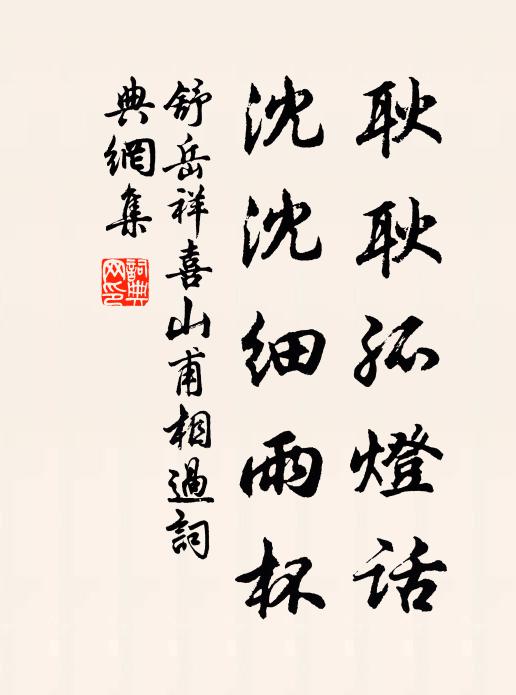 耿耿孤燈话
沈沈细雨杯
舒岳祥喜山甫相過詞
典網集
詞典网印